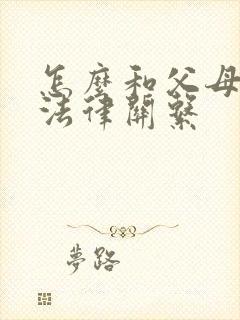 怎麼和父母
法律關繫
夢路